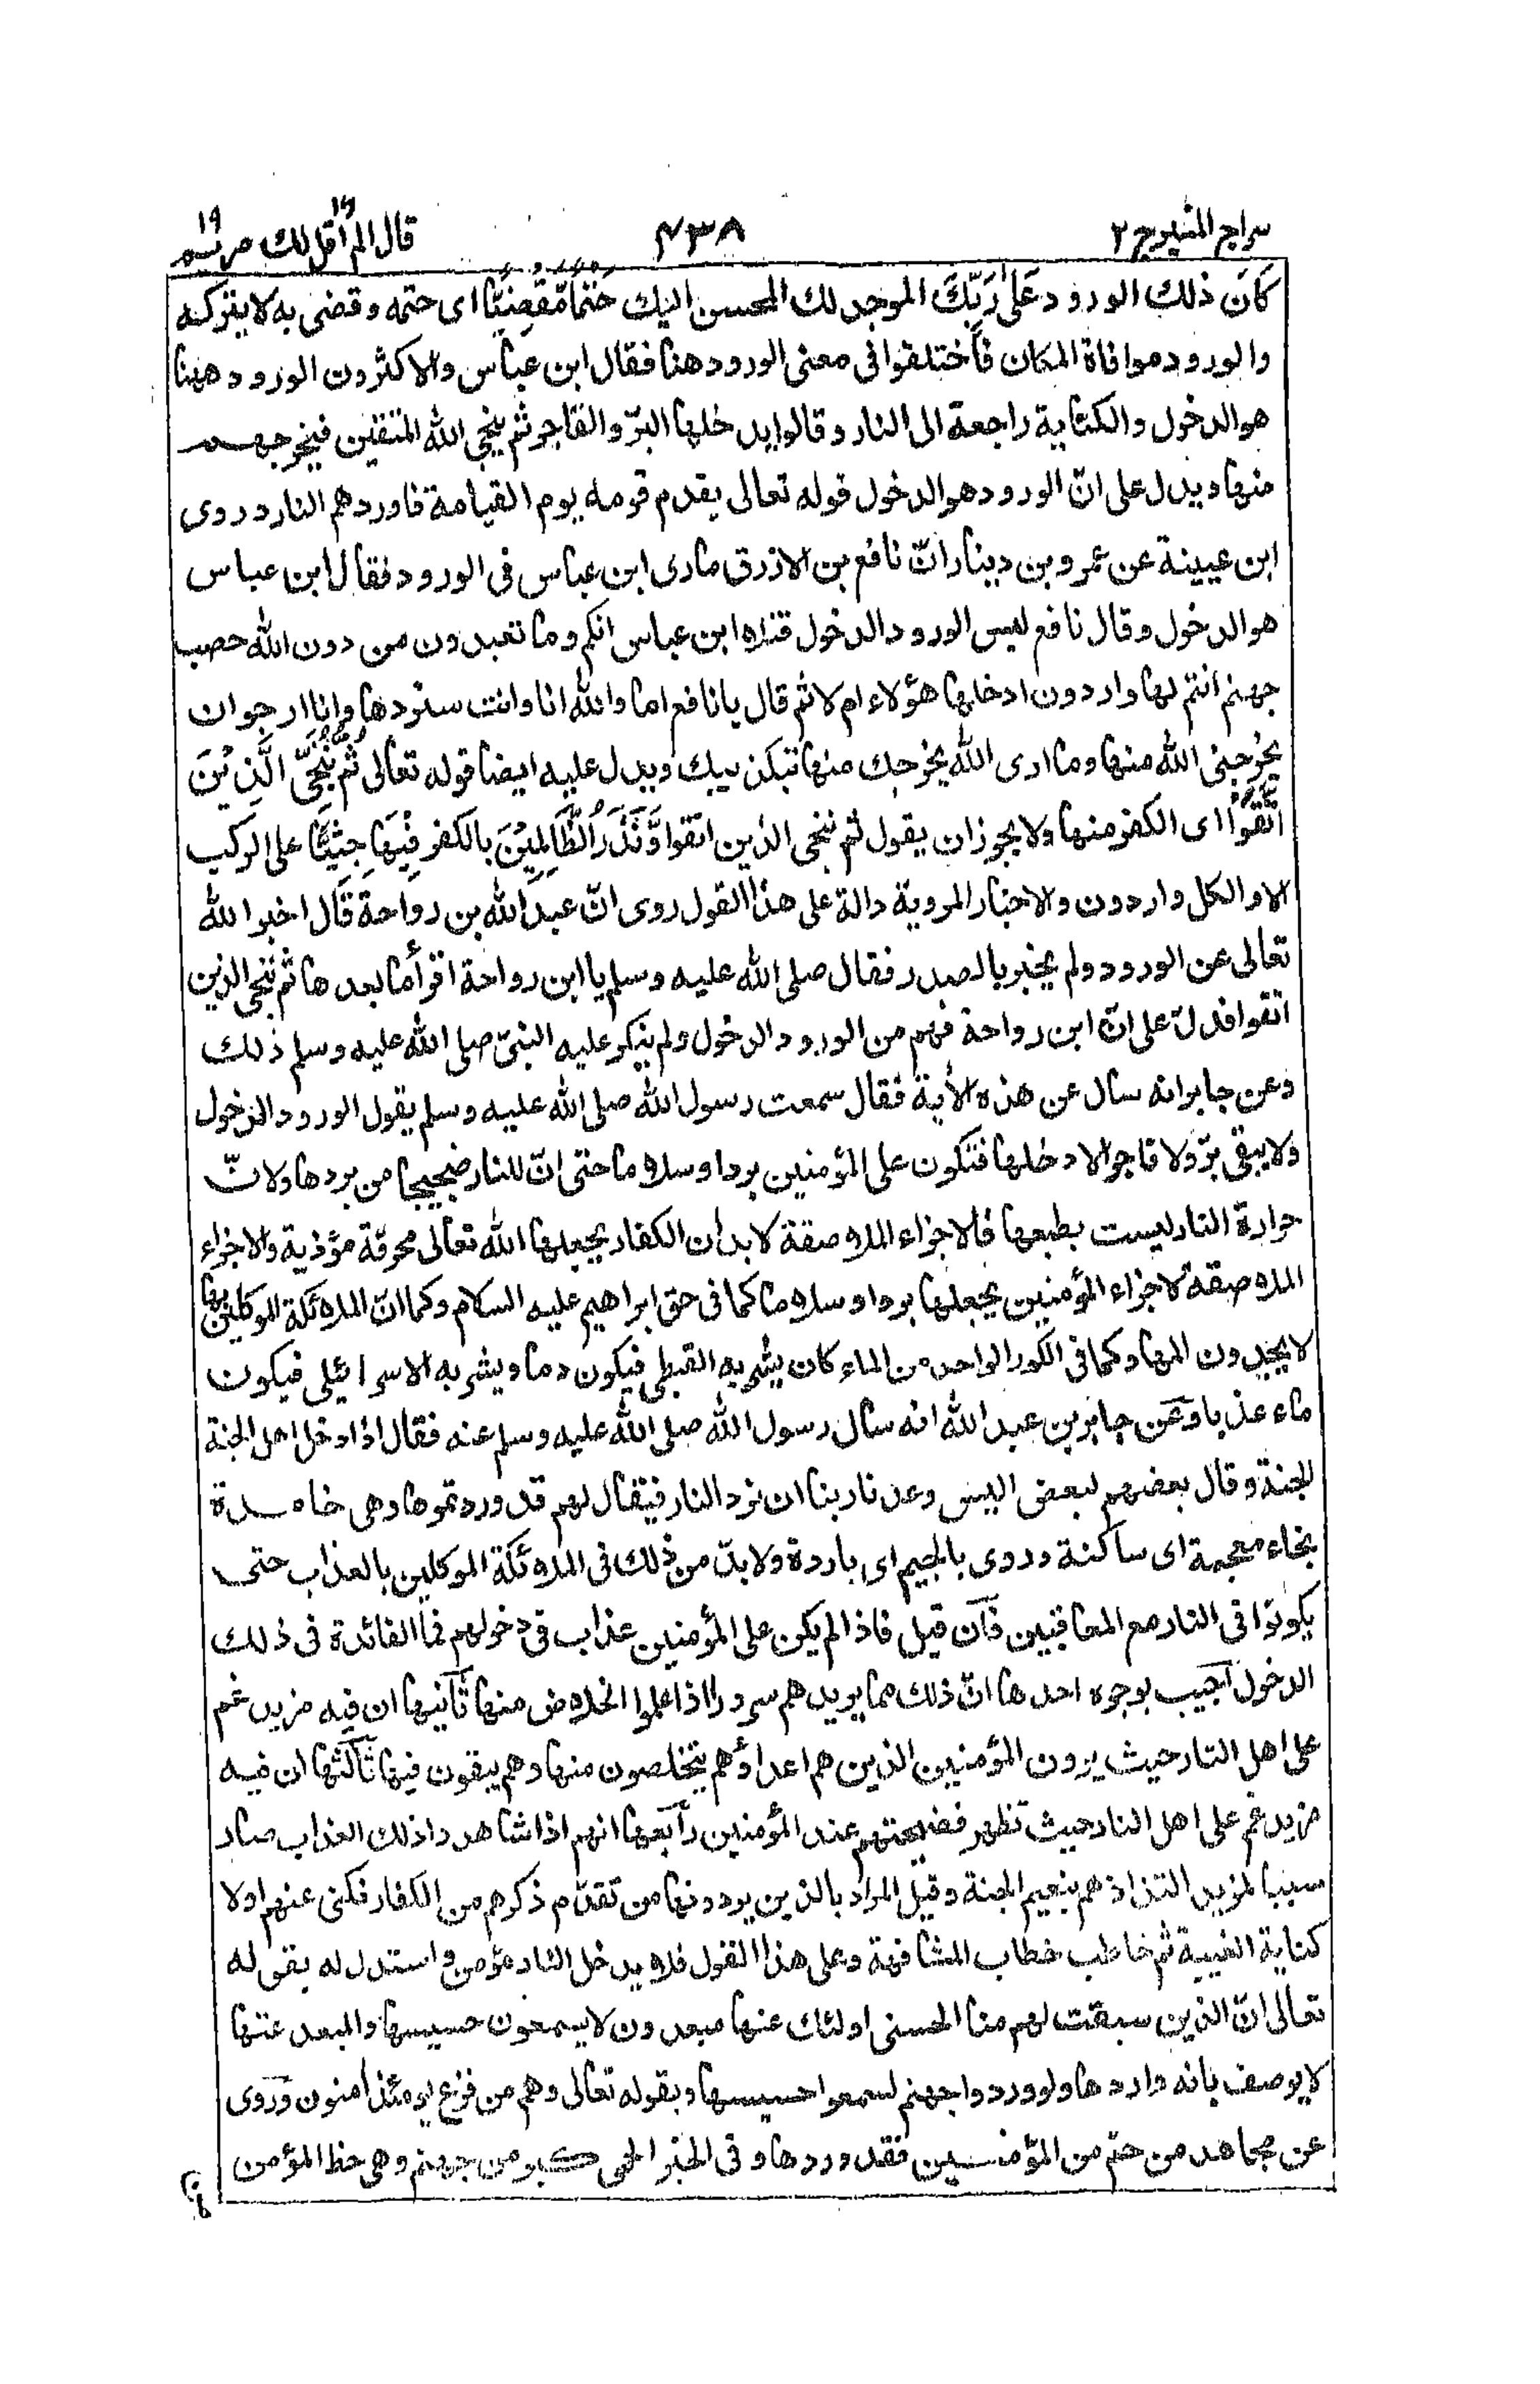 سراج المنیر ج ٢ ٤٣٨ قال الم اقل لك ١٦ مریم ١٩
كَانَ ذلك الورود عَلٰى رَبِّكَ الموجد لك المحسن اليك حَتْمًا مَّقْضِيًّا اى حتمه وقضى به لا يتركه
والورود موافاة المكان فاختلفوا فى معنى الورود هنا فقال ابن عباس والاكثرون الورود ههنا
هو الدخول والكناية راجعة الى النار وقالوا يدخلها البرّ والفاجر ثم ينجى الله المتقين فيخرجهم
منها ويدل على انّ الورود هو الدخول قوله تعالى يقدم قومه يوم القيامة فاوردهم النار وروى
ابن عيينة عن عمرو بن دينار انّ نافع بن الازرق مارى ابن عباس فى الورود فقال ابن عباس
هو الدخول وقال نافع ليس الورود الدخول فتلاه ابن عباس انكم وما تعبدون من دون الله حصب
جهنم انتم لها واردون ادخلها هؤلاء ام لا ثم قال يا نافع اما والله انا وانت سنردها وانا ارجو ان
يخرجنى الله منها وما ارى الله يخرجك منها بتكذيبك ويدل عليه ايضا قوله تعالى ثُمَّ نُنَجِّى الَّذِيْنَ
اتَّقَوْا اى الكفر منها ولا يجوز ان يقول ثم ننجى الذين اتقوا وَّنَذَرُ الظَّالِمِيْنَ بالكفر فِيْهَا جِثِيًّا على الركب
الا والكل واردون والاخبار المروية دالة على هذا القول روى انّ عبد الله بن رواحة قال اخبر الله
تعالى عن الورود ولم يخبر بالصدر فقال صلى الله عليه وسلم يا ابن رواحة اقرأ ما بعدها ثم ننجى الذين
اتقوا فدلّ على انّ ابن رواحة فهم من الورود الدخول ولم ينكر عليه النبىّ صلى الله عليه وسلم ذلك
وعن جابر انه سأل عن هذه الأية فقال سمعت رسول الله صلى الله عليه وسلم يقول الورود الدخول
ولا يبقى برّ ولا فاجر الا دخلها فتكون على المؤمنين بردا وسلاما حتى انّ للنار ضجيجا من بردها ولانّ
حرارة النار ليست بطبعها فالاجزاء الملاصقة لابدان الكفار يجعلها الله تعالى محرقة مؤذية والاجزاء
الملاصقة لاجزاء المؤمنين يجعلها بردا وسلاما كما فى حق ابراهيم عليه السلام وكما انّ الملائكة الموكلين بها
لا يجدون المها وكما فى الكوز الواحد من الماء كان يشربه القبطى فيكون دما ويشربه الاسرائيلى فيكون
ماء عذبا وعن جابر بن عبد الله انه سأل رسول الله صلى الله عليه وسلم عنه فقال اذا دخل اهل الجنة
الجنة وقال بعضهم لبعض اليس وعدنا ربنا ان نرد النار فيقال لهم قد وردتموها وهى خامدة
بخاء معجمة اى ساكنة وروى بالجيم اى باردة ولا بدّ من ذلك فى الملائكة الموكلين بالعذاب حتى
يكونوا فى النار مع المعاقبين فان قيل فاذا لم يكن على المؤمنين عذاب فى دخولهم فما الفائدة فى ذلك
الدخول اجيب بوجوه احدها انّ ذلك مما يزيدهم سرورا اذا علموا الخلاص منها ثانيها ان فيه مزيد غم
على اهل النار حيث يرون المؤمنين الذين هم اعداؤهم يتخلصون منها وهم يبقون فيها ثالثها ان فيه
مزيد غم على اهل النار حيث تظهر فضيحتهم عند المؤمنين رابعها انهم اذا شاهدوا ذلك العذاب صار
سببا لمزيد التذاذهم بنعيم الجنة وقيل المراد بالذين يردونها من تقدّم ذكرهم من الكفار فكنى عنهم اولا
كناية الغيبة ثم خاطب خطاب المشافهة وعلى هذا القول فلا يدخل النار مؤمن واستدل له بقوله
تعالى انّ الذين سبقت لهم منا الحسنى اولئك عنها مبعدون لا يسمعون حسيسها والمبعد عنها
لا يوصف بانه واردها ولو وردوا جهنم لسمعوا حسيسها وبقوله تعالى وهم من فزع يومئذ أمنون وروى
عن مجاهد من حمّ من المؤمنين فقد وردها وفى الخبر الحمى كير من جهنم وهى حظ المؤمن